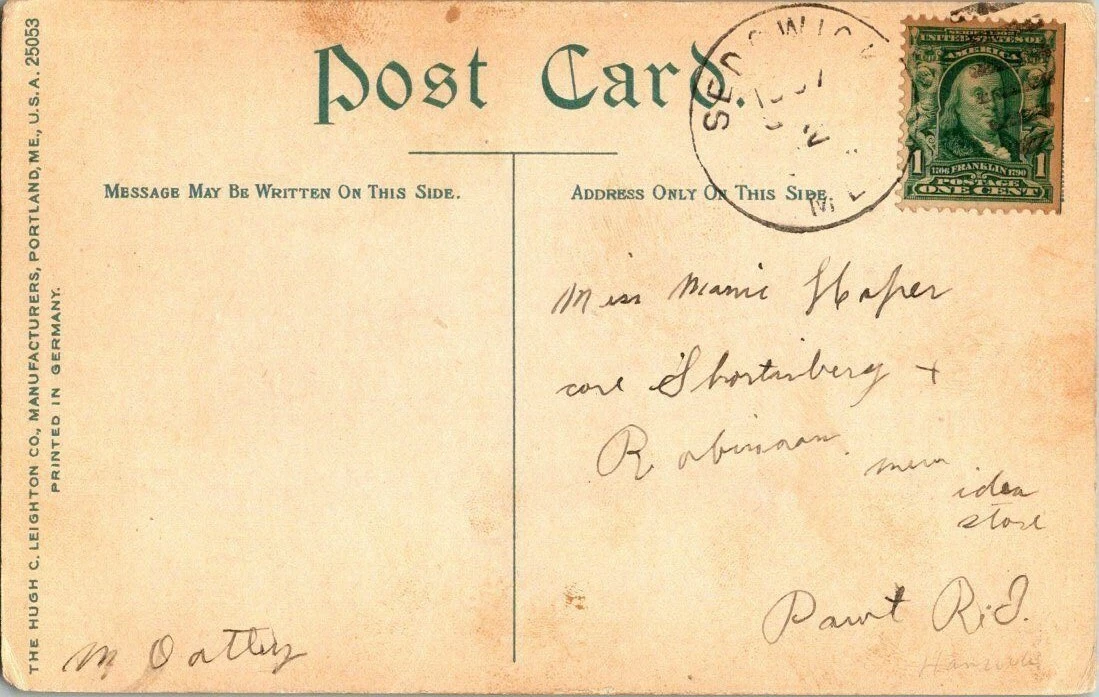 Post Card.
MESSAGE MAY BE WRITTEN ON THIS SIDE.
ADDRESS ONLY ON THIS SIDE.
THE HUGH C. LEIGHTON CO., MANUFACTURERS, PORTLAND, ME., U.S.A. 25053
PRINTED IN GERMANY.
SEDGWICK
ME
UNITED STATES OF
AMERICA
1 FRANKLIN 1
1706 1790
POSTAGE
ONE CENT
Miss Mamie
care Shortenberg +
Robinson
idea
store
Pawt R.I.
M Oatley